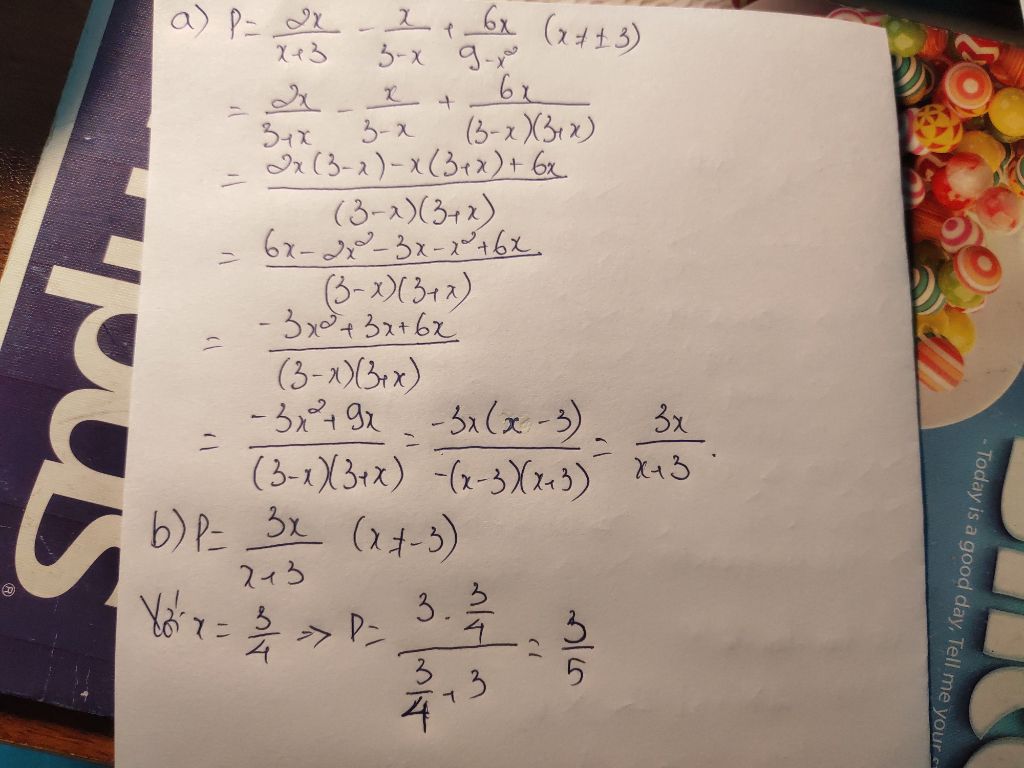 a) P = 2x/(x+3) - x/(3-x) + 6x/(9-x²) (x ≠ ±3)
= 2x/(3+x) - x/(3-x) + 6x/((3-x)(3+x))
= (2x(3-x) - x(3+x) + 6x)/((3-x)(3+x))
= (6x - 2x² - 3x - x² + 6x)/((3-x)(3+x))
= (-3x² + 3x + 6x)/((3-x)(3+x))
= (-3x² + 9x)/((3-x)(3+x)) = (-3x(x-3))/(-(x-3)(x+3)) = 3x/(x+3).
b) P = 3x/(x+3) (x ≠ -3)
Với x = 3/4 => P = (3 . 3/4)/(3/4 + 3) = 3/5
®
- Today is a good day. Tell me your